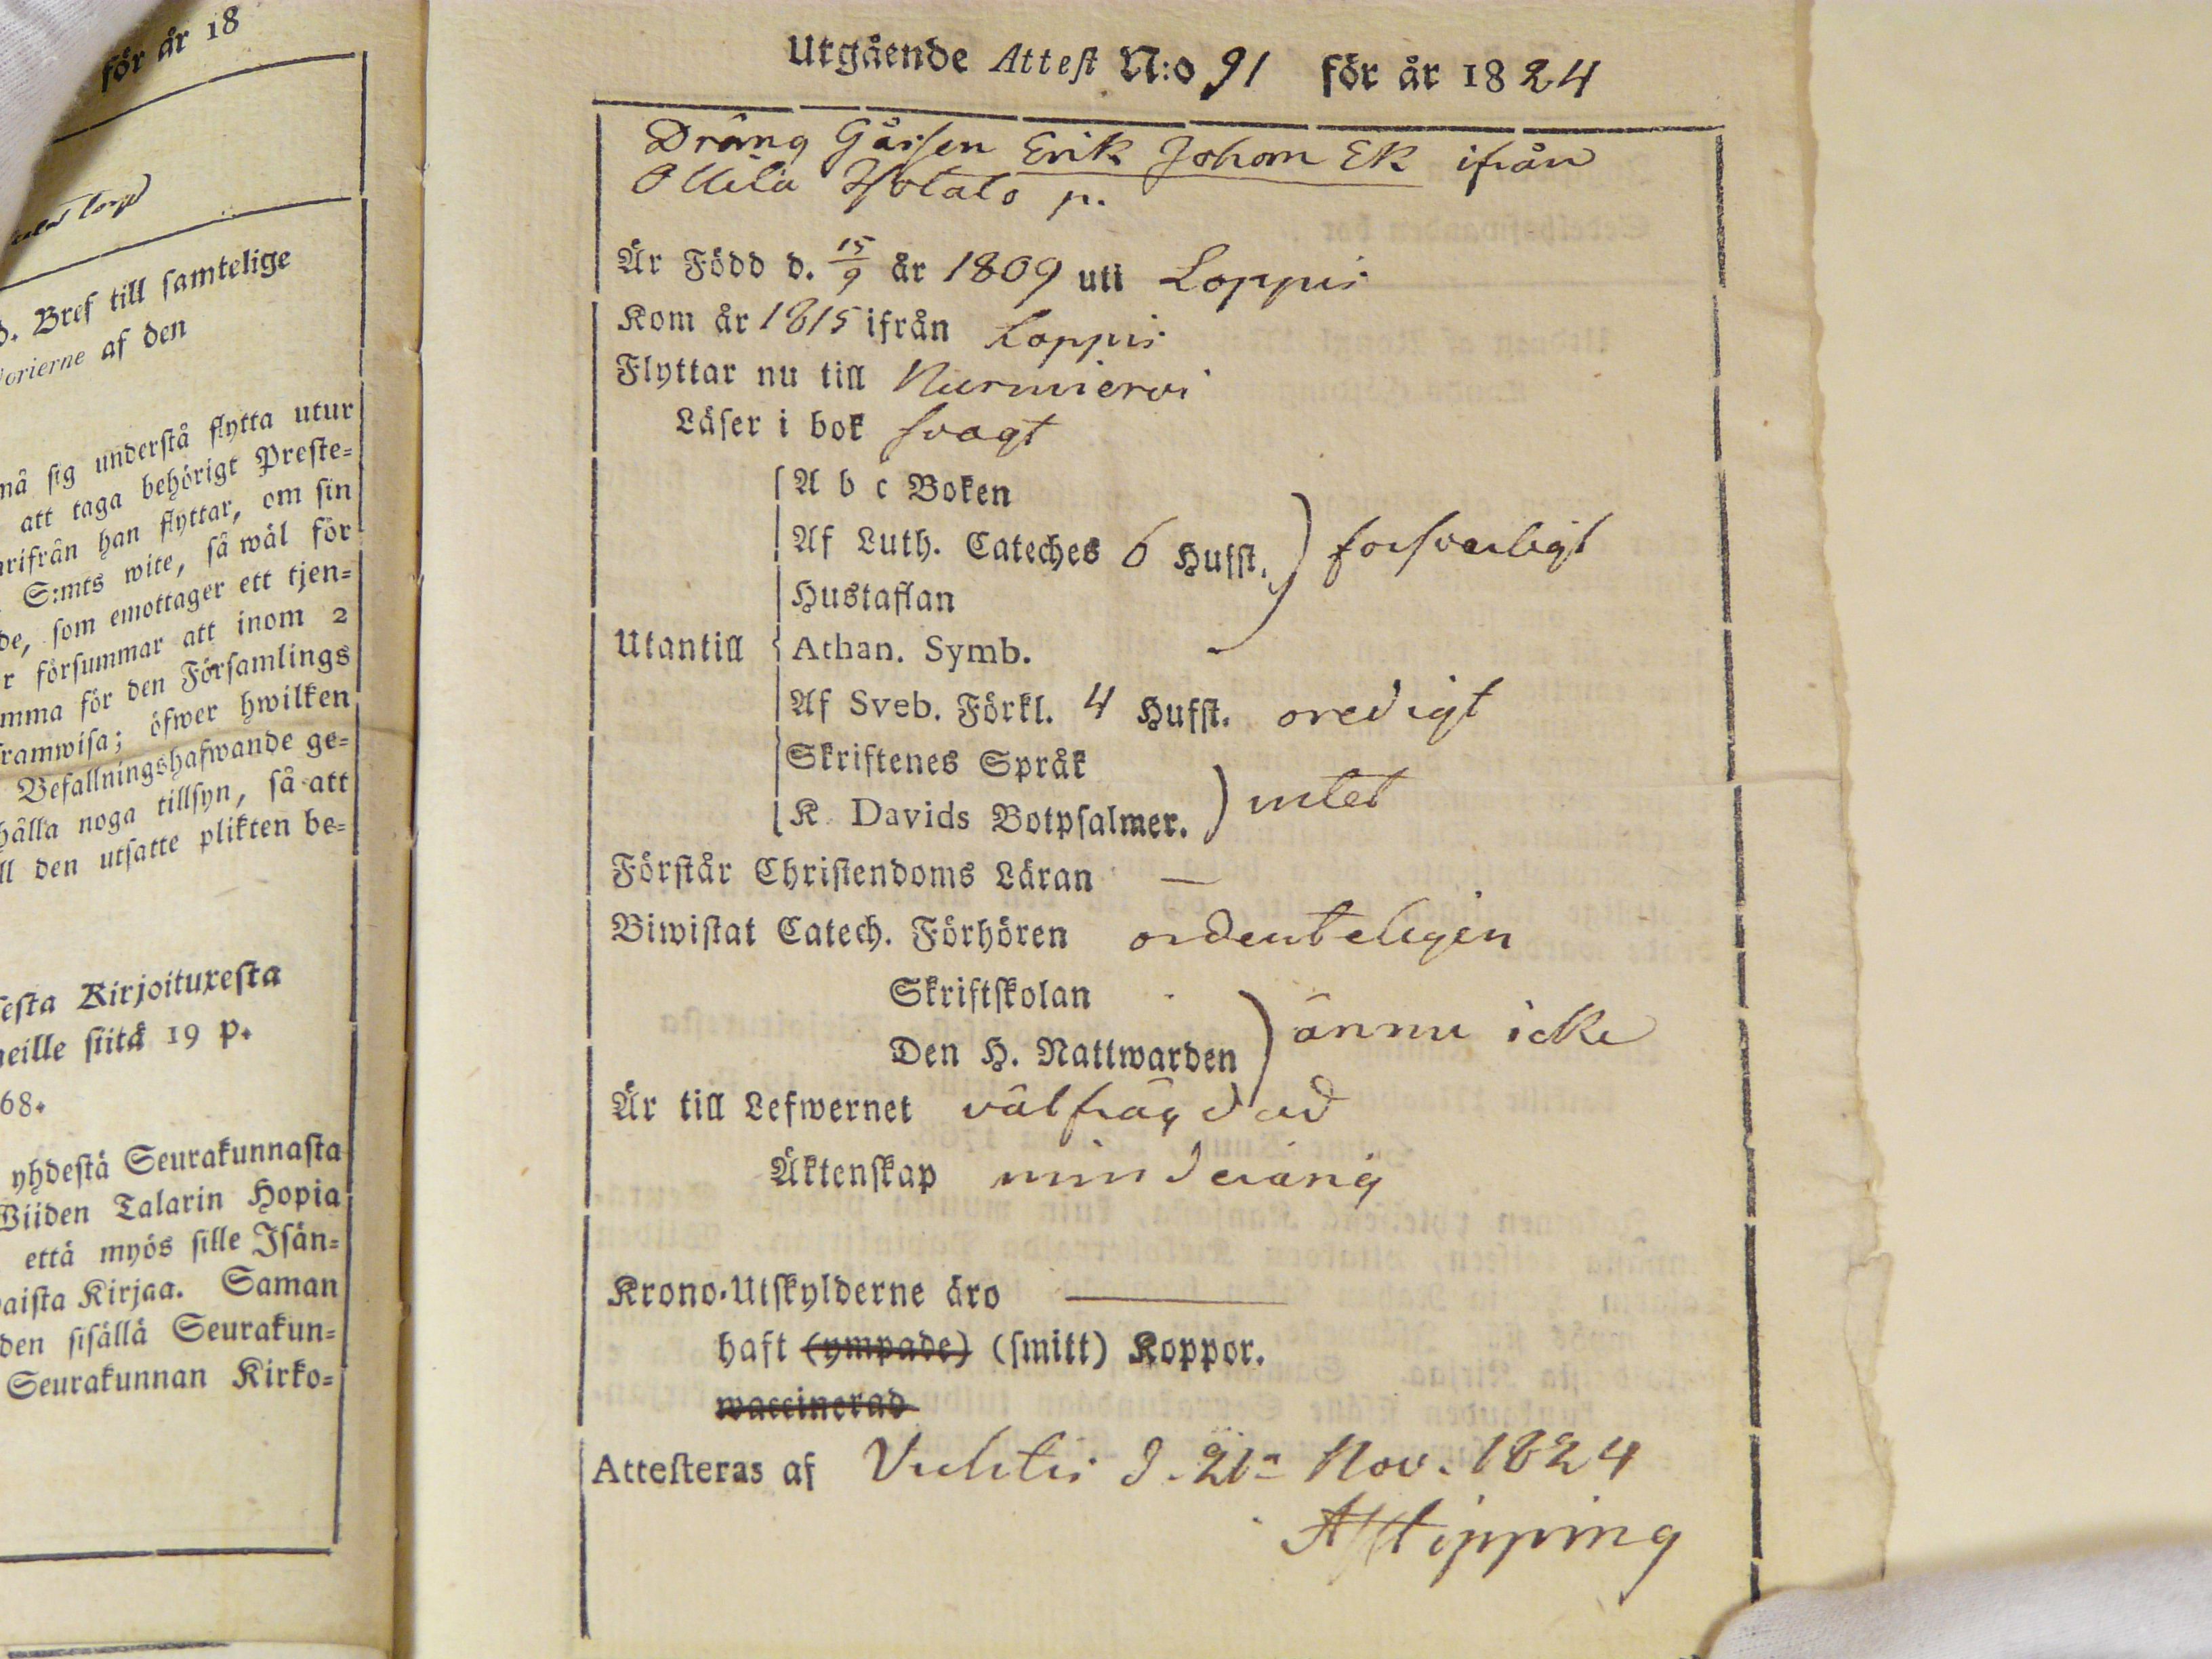 för år 18
d. Bref till samtelige
orierne af den
må sig understå flytta utur
att taga behörigt Preste-
rifrån han flyttar, om sin
S:mts wite, så wäl för
de, som emottager ett tjen-
r försummar att inom 2
mma för den Församlings
ramwisa; öfwer hwilken
Befallningshafwande ge-
hålla noga tillsyn, så att
ll den utsatte plikten be-
esta Kirjoituxesta
eille siitä 19 p.
68.
yhdestä Seurakunnasta
Wiiden Talarin Hopia
että myös sille Isän-
aista Kirjaa. Saman
den sisällä Seurakun-
Seurakunnan Kirko-
Utgående Attest N:o 91 för år 1824
Dräng Gåssen Erik Johom Ek ifrån
Ollila Isotalo p.
Är Född d. 15/9 år 1809 uti Loppis
Kom år 1815 ifrån Loppis
Flyttar nu till Nurmiervi
Läser i bok svagt
A b c Boken
Af Luth. Cateches 6 Hufst. forsvarligt
Hustaflan
Utantill Athan. Symb.
Af Sveb. Förkl. 4 Hufst. oredigt
Skriftenes Språk
K. Davids Botpsalmer. intet
Förstår Christendoms Läran —
Biwistat Catech. Förhören ordenteligen
Skriftskolan
Den H. Nattwarden ännu icke
Är till Lefwernet välfrägdad
Äktenskap minderårig
Krono-Utskylderne äro —
haft (ympade) (smitt) Koppor.
waccinerad
Attesteras af Vichtis d. 21a Nov. 1824